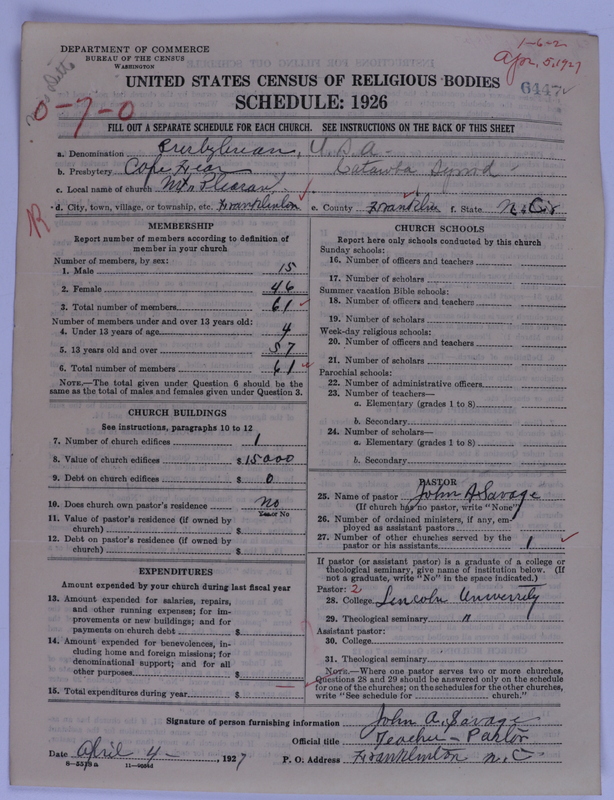 DEPARTMENT OF COMMERCE
BUREAU OF THE CENSUS
WASHINGTON
1-6-2
Apr. 5, 1927
UNITED STATES CENSUS OF RELIGIOUS BODIES
SCHEDULE: 1926
0-7-0
FILL OUT A SEPARATE SCHEDULE FOR EACH CHURCH. SEE INSTRUCTIONS ON THE BACK OF THIS SHEET
a. Denomination Presbyterian, U.S.A.
b. Presbytery Cape Fear Catawba Synod
c. Local name of church Mt. Pleasant
d. City, town, village, or township, etc. Franklinton e. County Franklin f. State N.C.
MEMBERSHIP
Report number of members according to definition of
member in your church
Number of members, by sex:
1. Male 15
2. Female 46
3. Total number of members 61
Number of members under and over 13 years old:
4. Under 13 years of age 4
5. 13 years old and over 57
6. Total number of members 61
NOTE.—The total given under Question 6 should be
same as the total of males and females given under Question 3.
CHURCH BUILDINGS
See instructions, paragraphs 10 to 12
7. Number of church edifices 1
8. Value of church edifices $15000
9. Debt on church edifices $ 0
10. Does church own pastor's residence No
Yes or No
11. Value of pastor's residence (if owned by
church) $
12. Debt on pastor's residence (if owned by
church) $
EXPENDITURES
Amount expended by your church during last fiscal year
13. Amount expended for salaries, repairs,
and other running expenses; for im-
provements or new buildings; and for
payments on church debt $
14. Amount expended for benevolences, in-
cluding home and foreign missions; for
denominational support; and for all
other purposes $
15. Total expenditures during year $
CHURCH SCHOOLS
Report here only schools conducted by this church
Sunday schools:
16. Number of officers and teachers
17. Number of scholars
Summer vacation Bible schools:
18. Number of officers and teachers
19. Number of scholars
Week-day religious schools:
20. Number of officers and teachers
21. Number of scholars
Parochial schools:
22. Number of administrative officers
23. Number of teachers—
a. Elementary (grades 1 to 8)
b. Secondary
24. Number of scholars—
a. Elementary (grades 1 to 8)
b. Secondary
PASTOR
25. Name of pastor John A. Savage
(If church has no pastor, write "None")
26. Number of ordained ministers, if any, em-
ployed as assistant pastors
27. Number of other churches served by the
pastor or his assistants 1
If pastor (or assistant pastor) is a graduate of a college or
theological seminary, give name of institution below. (If
not a graduate, write "No" in the space indicated.)
Pastor: 2
28. College Lincoln University
29. Theological seminary "
Assistant pastor:
30. College
31. Theological seminary
NOTE.—Where one pastor serves two or more churches,
Questions 28 and 29 should be answered only on the schedule
for one of the churches; on the schedules for the other churches,
write "See schedule for church."
Signature of person furnishing information John A. Savage
Official title Teacher - Pastor
Date April 4 , 1927 P. O. Address Franklinton N.C.